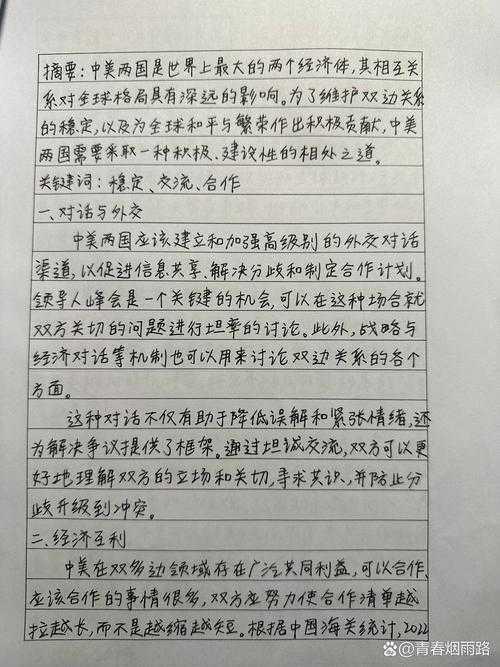 摘要：中美两国是世界上最大的两个经济体，其相互关
系对全球格局具有深远的影响。为了维护双边关系
的稳定，以及为全球和平与繁荣作出积极贡献，中美
两国需要采取一种积极、建设性的相处之道。
关键词：稳定、交流、合作
一、对话与外交
中美两国应该建立和加强高级别的外交对话
渠道，以促进信息共享、解决分歧和制定合作计划。
领导人峰会是一个关键的机会，可以在这种场合就
双方关切的问题进行坦率的讨论。此外，战略与
经济对话等机制也可以用来讨论双边关系的各个
方面。
这种对话不仅有助于降低误解和紧张情绪，还
为解决争议提供了框架。通过坦诚交流，双方可以更
好地理解双方的立场和关切，寻求共识，并防止分
歧升级到冲突。
二、经济互利
中美在双多边领域存在广泛共同利益，可以合作、
应该合作的事情很多，双方应努力使合作清单越
拉越长，而不是越缩越短。根据中国海关统计，2022
@青春烟雨路